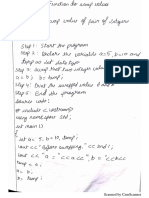 Function for swap values
swap value of pair of integers
Step 1: Start the program
Step 2: Declare the variable a=5, b=10 and
temp as int data type
Step 3: Swap that two integer value
a = b; b = temp;
Step 4: Print the swapped value
Step 5: End the program
Source code:
# include <iostream>
using namespace std;
int main()
{
int a = 5, b = 10, temp;
cout << "Before swapping." << endl;
cout << "a = " << a << "b = " << b <<
endl;
a = b;
b = temp;
Scanned by CamScanner